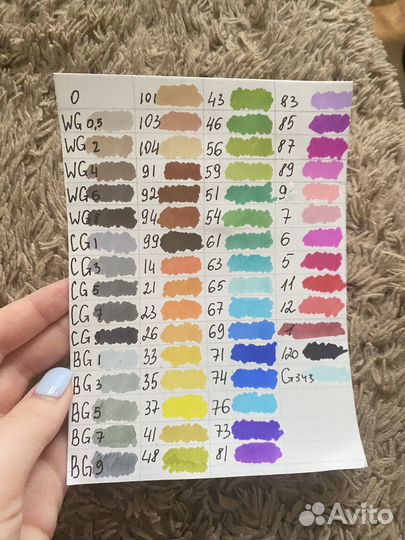 0
WG 0,5
WG 2
WG 4
WG 6
WG 8
CG 1
CG 3
CG 5
CG 7
CG 9
BG 1
BG 3
BG 5
BG 7
BG 9
101
103
104
91
92
94
99
14
21
23
26
33
35
37
41
48
43
46
56
59
51
54
61
63
65
67
69
71
74
76
73
81
83
85
87
89
9
7
6
5
11
12
1
120
G343
Avito